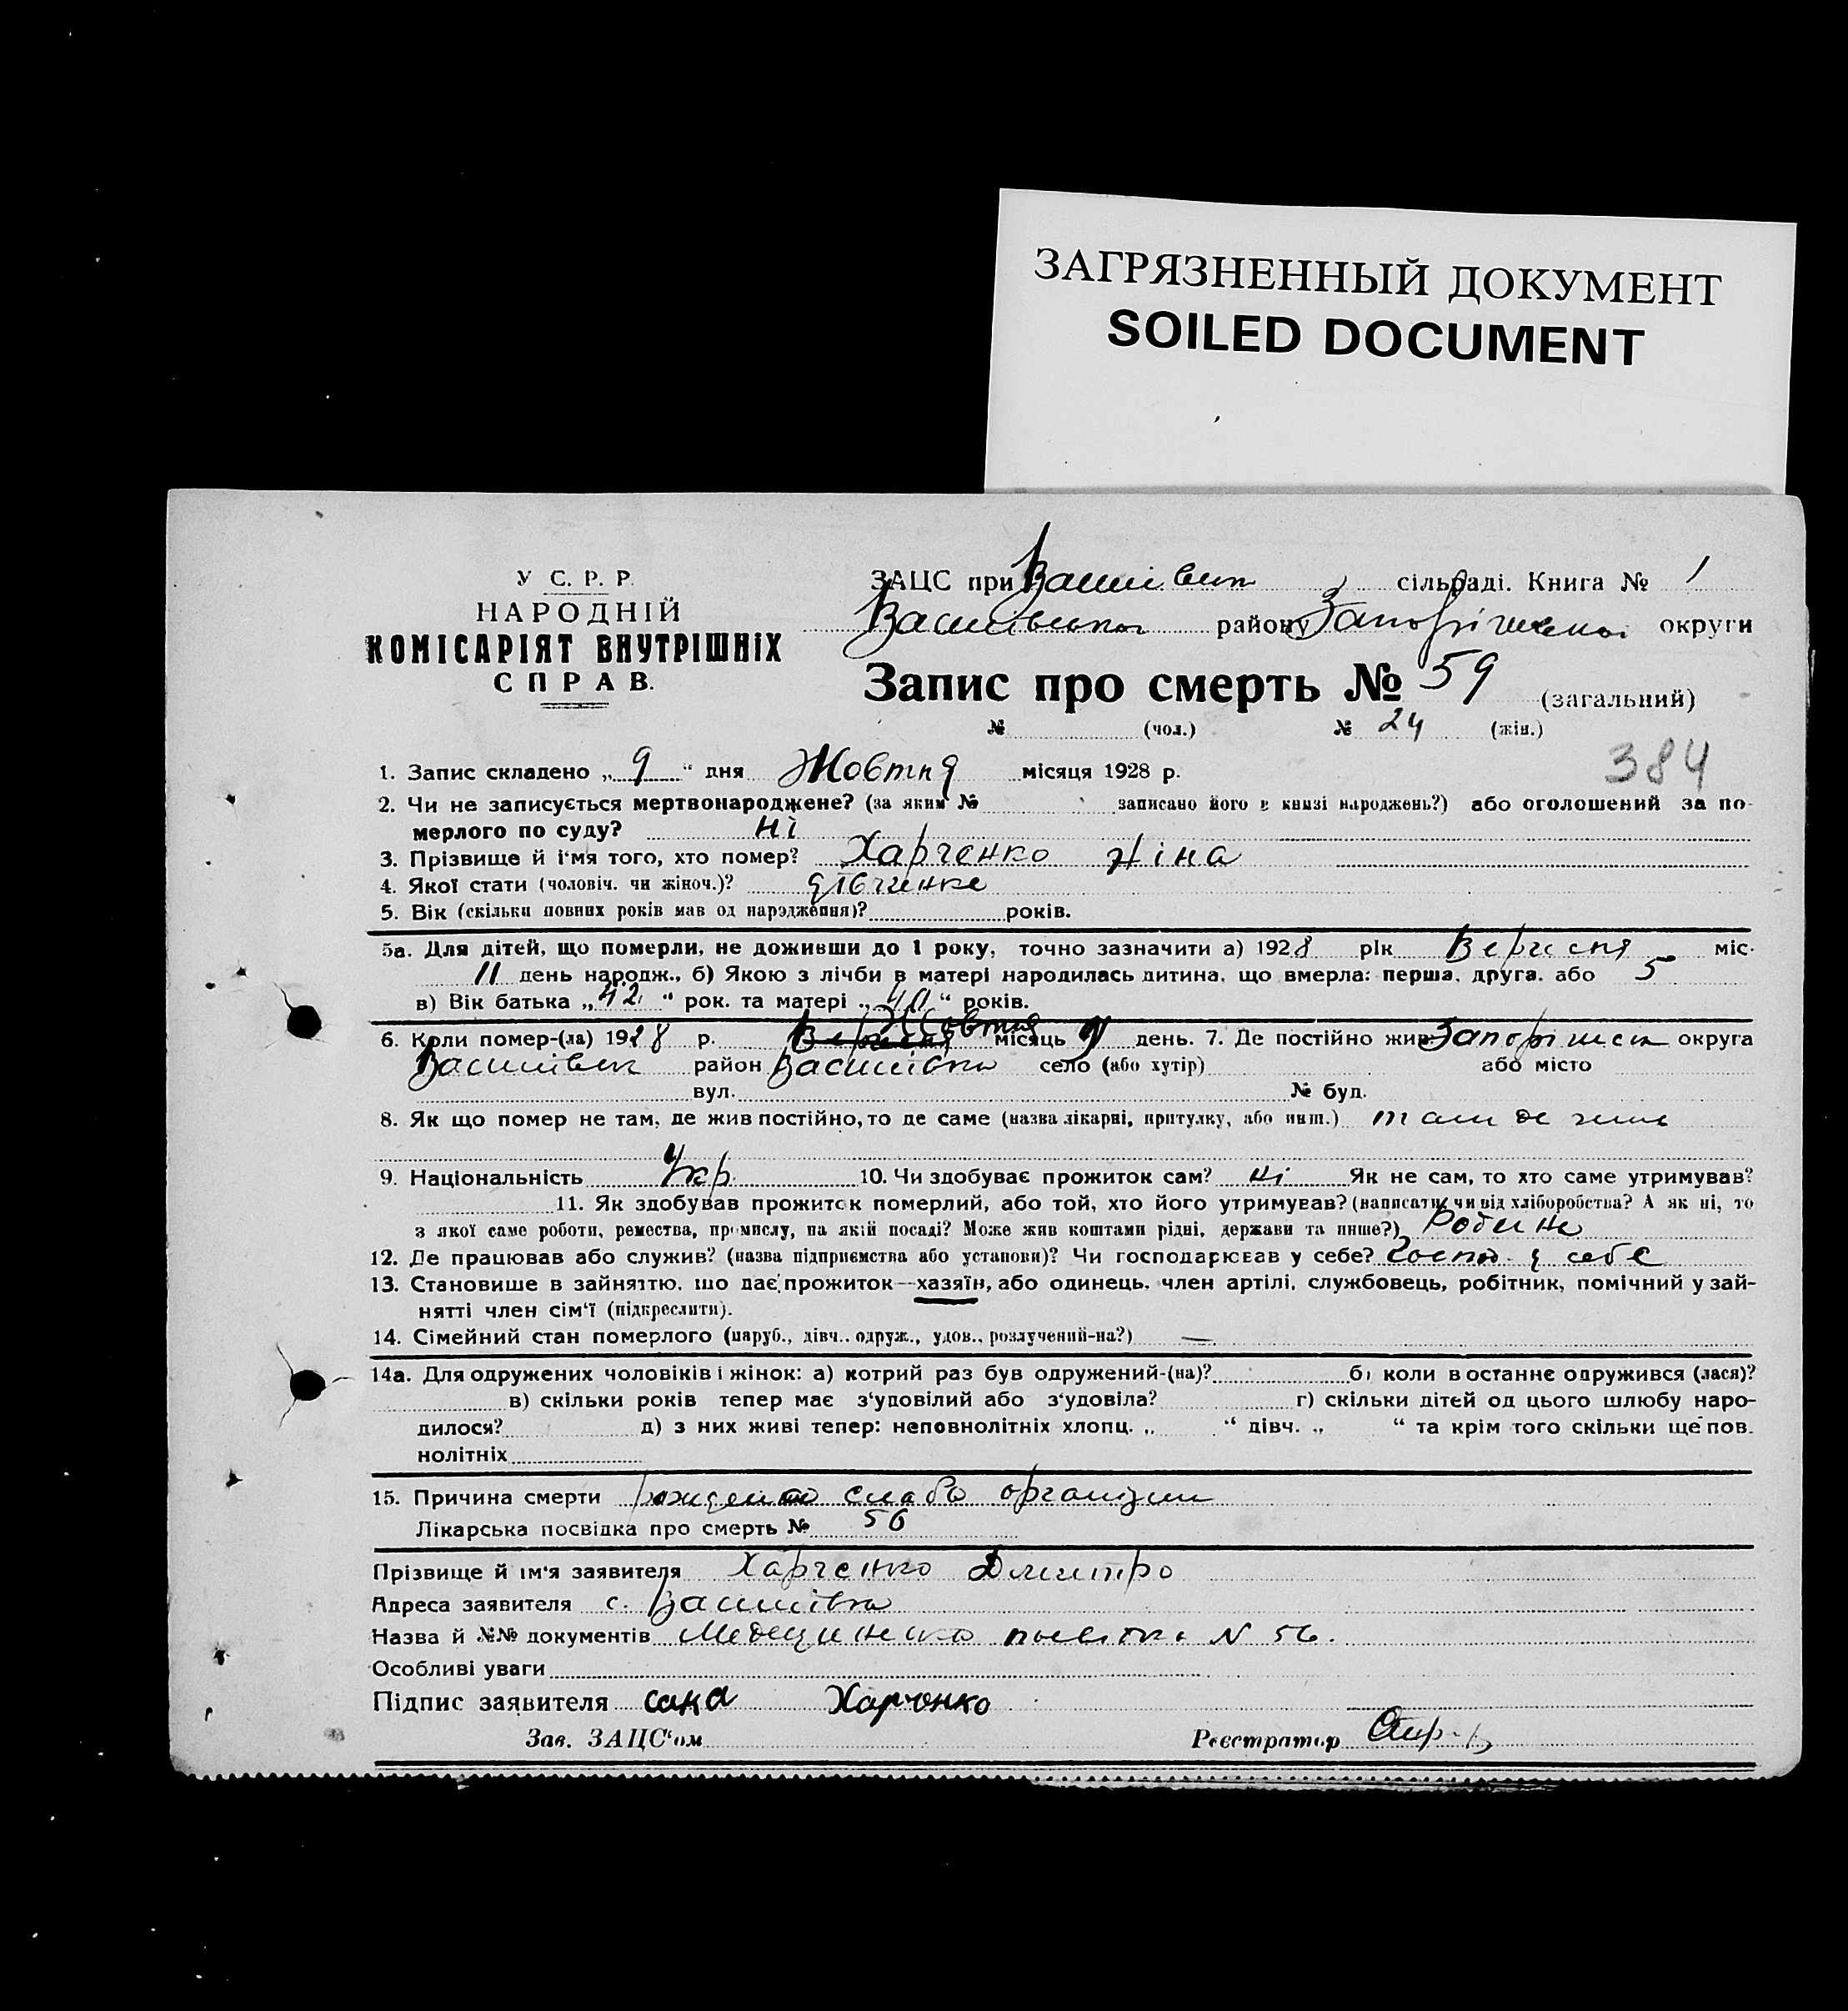 ЗАГРЯЗНЕННЫЙ ДОКУМЕНТ
SOILED DOCUMENT
У С. Р. Р.
НАРОДНІЙ
КОМІСАРІЯТ ВНУТРІШНІХ
СПРАВ.
ЗАЦС при сільраді. Книга № 1
району округи
Запис про смерть № 59 (загальний)
№ (чол.) № 24 (жін.)
384
1. Запис складено „ 9 “ дня Жовтня місяця 1928 р.
2. Чи не записується мертвонароджене? (за яким № записано його в книзі народжень?) або оголошений за по-
мерлого по суду? ні
3. Прізвище й ім'я того, хто помер? Харченко Ніна
4. Якої стати (чоловіч. чи жіноч.)?
5. Вік (скільки повних років мав од народження)? років.
5а. Для дітей, що померли, не доживши до 1 року, точно зазначити а) 1928 рік Вересня міс.
11 день народж., б) Якою з лічби в матері народилась дитина, що вмерла: перша, друга, або 5
в) Вік батька „ 42 “ рок. та матері „ 40 “ років.
6. Коли помер-(ла) 1928 р. Вересня Жовтня місяць 9 день. 7. Де постійно жив округа
район Василівка село (або хутір) або місто
вул. № буд.
8. Як що помер не там, де жив постійно, то де саме (назва лікарні, притулку, або инш.) там де
9. Національність Укр. 10. Чи здобуває прожиток сам? ні Як не сам, то хто саме утримував?
11. Як здобував прожиток померлий, або той, хто його утримував? (написати, чи від хліборобства? А як ні, то
з якої саме роботи, ремества, промислу, на якій посаді? Може жив коштами рідні, держави та инше?)
12. Де працював або служив? (назва підприємства або установи)? Чи господарював у себе? у себе
13. Становище в зайняттю, що дає прожиток—хазяїн, або одинець, член артілі, службовець, робітник, помічний у зай-
нятті член сім'ї (підкреслити).
14. Сімейний стан померлого (паруб., дівч., одруж., удов., розлучений-на?) —
14а. Для одружених чоловіків і жінок: а) котрий раз був одружений-(на)? б) коли в останнє одружився (лася)?
в) скільки років тепер має з'удовілий або з'удовіла? г) скільки дітей од цього шлюбу наро-
дилося? д) з них живі тепер: неповнолітніх хлопц. „ “ дівч. „ “ та крім того скільки ще пов.
нолітніх
15. Причина смерти слабо
Лікарська посвідка про смерть № 56
Прізвище й ім'я заявителя Харченко Дмитро
Адреса заявителя с. Василівка
Назва й №№ документів N 56.
Особливі уваги
Підпис заявителя Харченко
Зав. ЗАЦС'ом Реєстратор